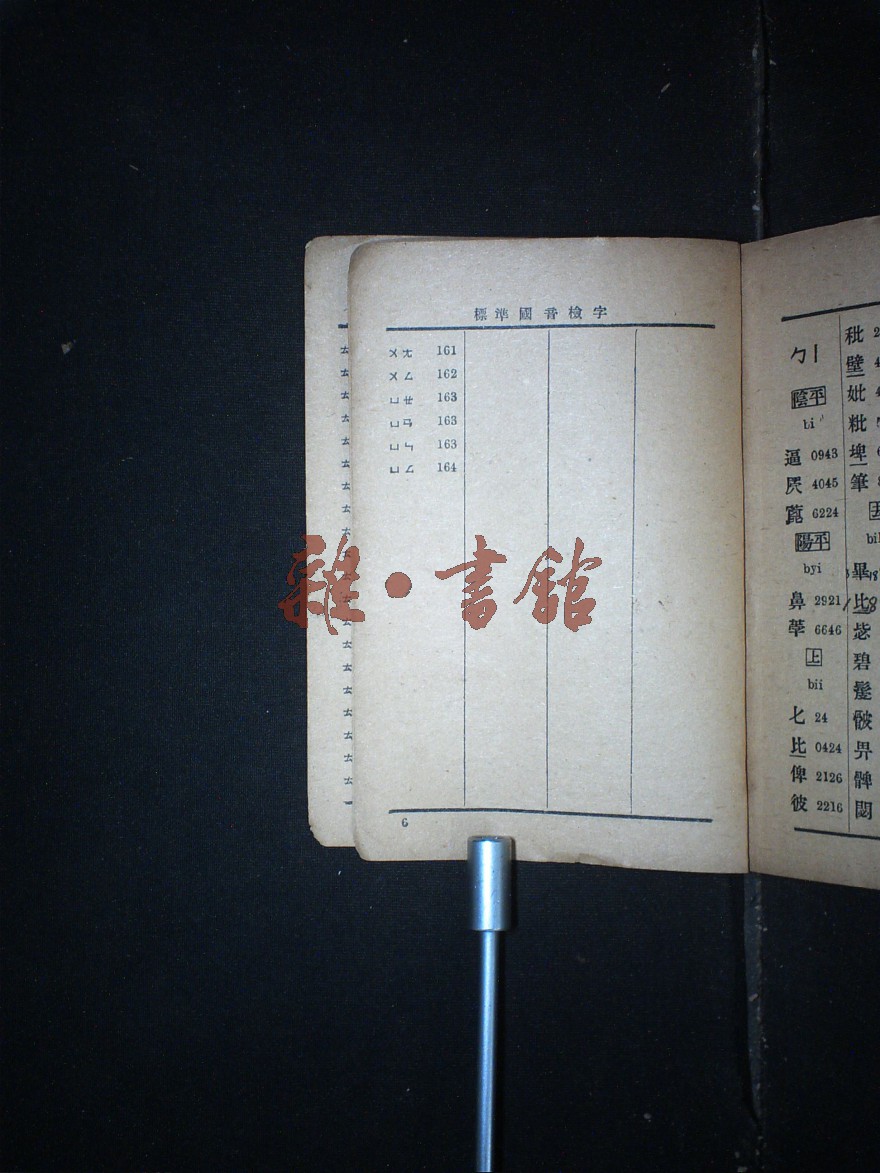 標準國音檢字
ㄨㄤ 161
ㄨㄥ 162
ㄩㄝ 163
ㄩㄢ 163
ㄩㄣ 163
ㄩㄥ 164
6
雜·書館
ㄅㄧ
陰平
bi
逼 0943
屄 4045
蓖 6224
陽平
byi
鼻 2921
荸 6646
上
bii
匕 24
比 0424
俾 2126
彼 2216
秕
壁
妣
粃
埤
筆
畢
比
毖
碧
髲
畀
髀
閟